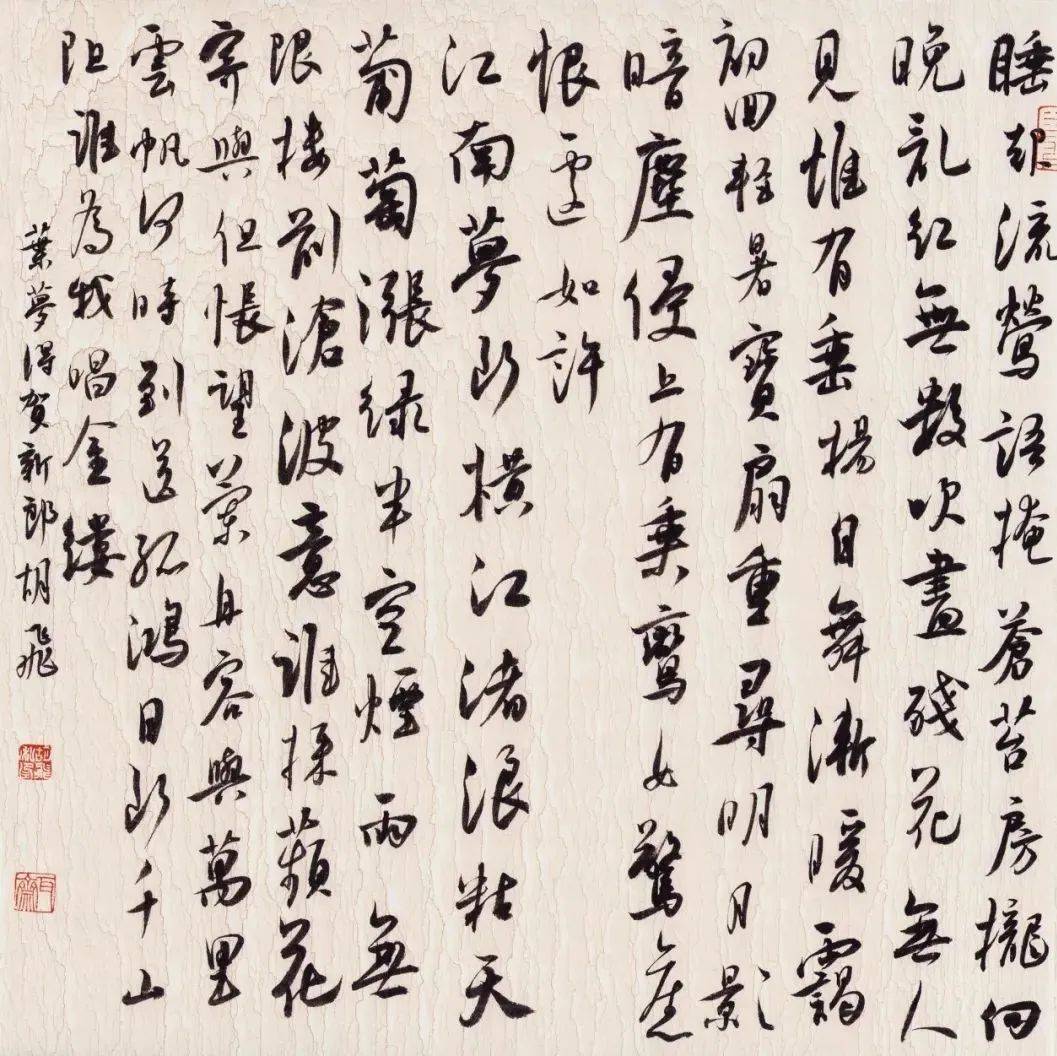 睡起流鶯語掩蒼苔房櫳向
晚亂紅無數吹盡殘花無人
見惟有垂楊自舞漸暖靄
初回輕暑寶扇重尋明月影
暗塵侵上有乘鸞女驚舊
恨遽如許
江南夢斷橫江渚浪粘天
葡萄漲綠半空煙雨無
限樓前滄波意誰採蘋花
寄與但悵望蘭舟容與萬里
雲帆何時到送孤鴻目斷千山
阻誰為我唱金縷
葉夢得賀新郎胡飛